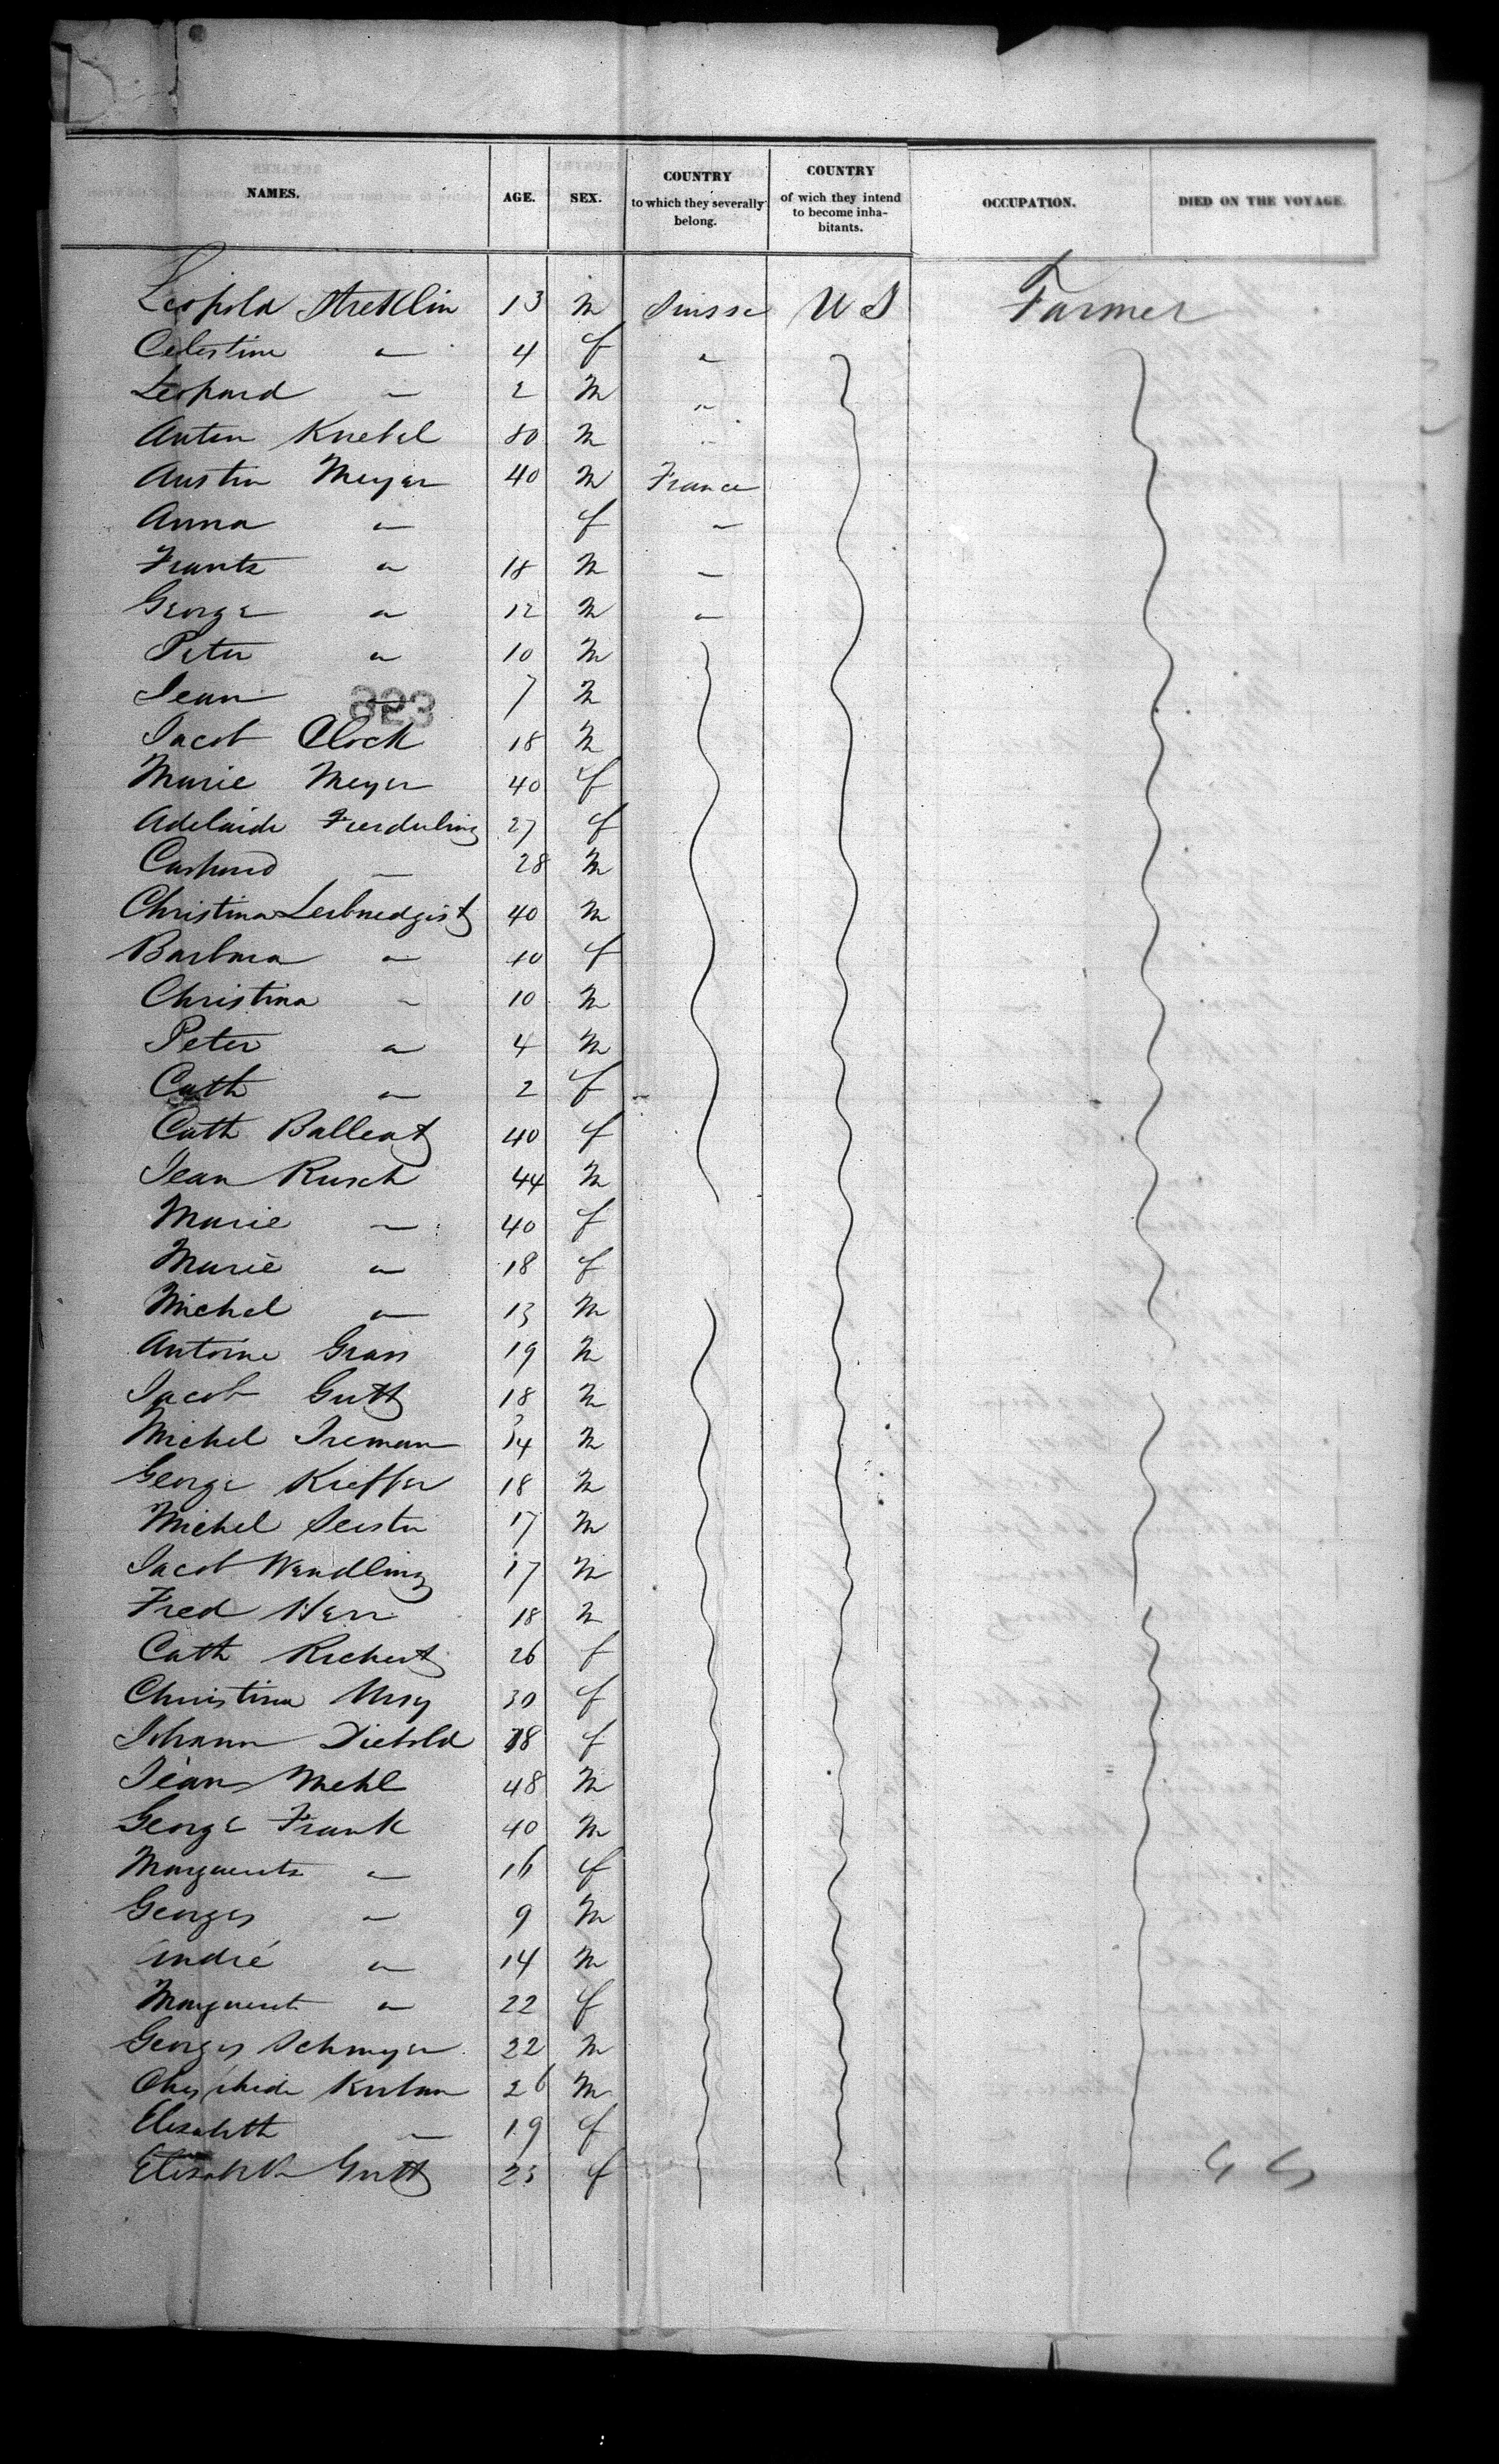 NAMES. AGE. SEX. COUNTRY to which they severally belong. COUNTRY of wich they intend to become inha-bitants. OCCUPATION. DIED ON THE VOYAGE.
Leopold Streklin 13 M Suisse U S Farmer
Celestine " 4 f "
Leopard " 2 M "
Anton Knebel 80 M "
Austin Meyer 40 M France
Anna " f "
Frantz " 18 M "
George " 12 M "
Peter " 10 M
Jean " 7 M
823
Jacob Clock 18 M
Marie Meyer 40 f
Adelaide 27 f
" 28 M
Christina 40 M
Barbara " 40 f
Christina " 10 M
Peter " 4 M
Cath " 2 f
Cath Balleat 40 f
Jean Rusch 44 M
Marie " 40 f
Marie " 18 f
Michel " 13 M
Antoine Grass 19 M
Jacob Gutt 18 M
Michel 34 M
George Kieffer 18 M
Michel 17 M
Jacob Wendling 17 M
Fred Herr 18 M
Cath Richert 26 f
Christina 30 f
Johann Diebold 18 f
Jean Mehl 48 M
George Frank 40 M
Marguerite " 16 f
Georges " 9 M
André " 14 M
Marguerit " 22 f
Georges Schmyer 22 M
26 M
Elisabeth " 19 f
Elisabeth Gutt 25 f